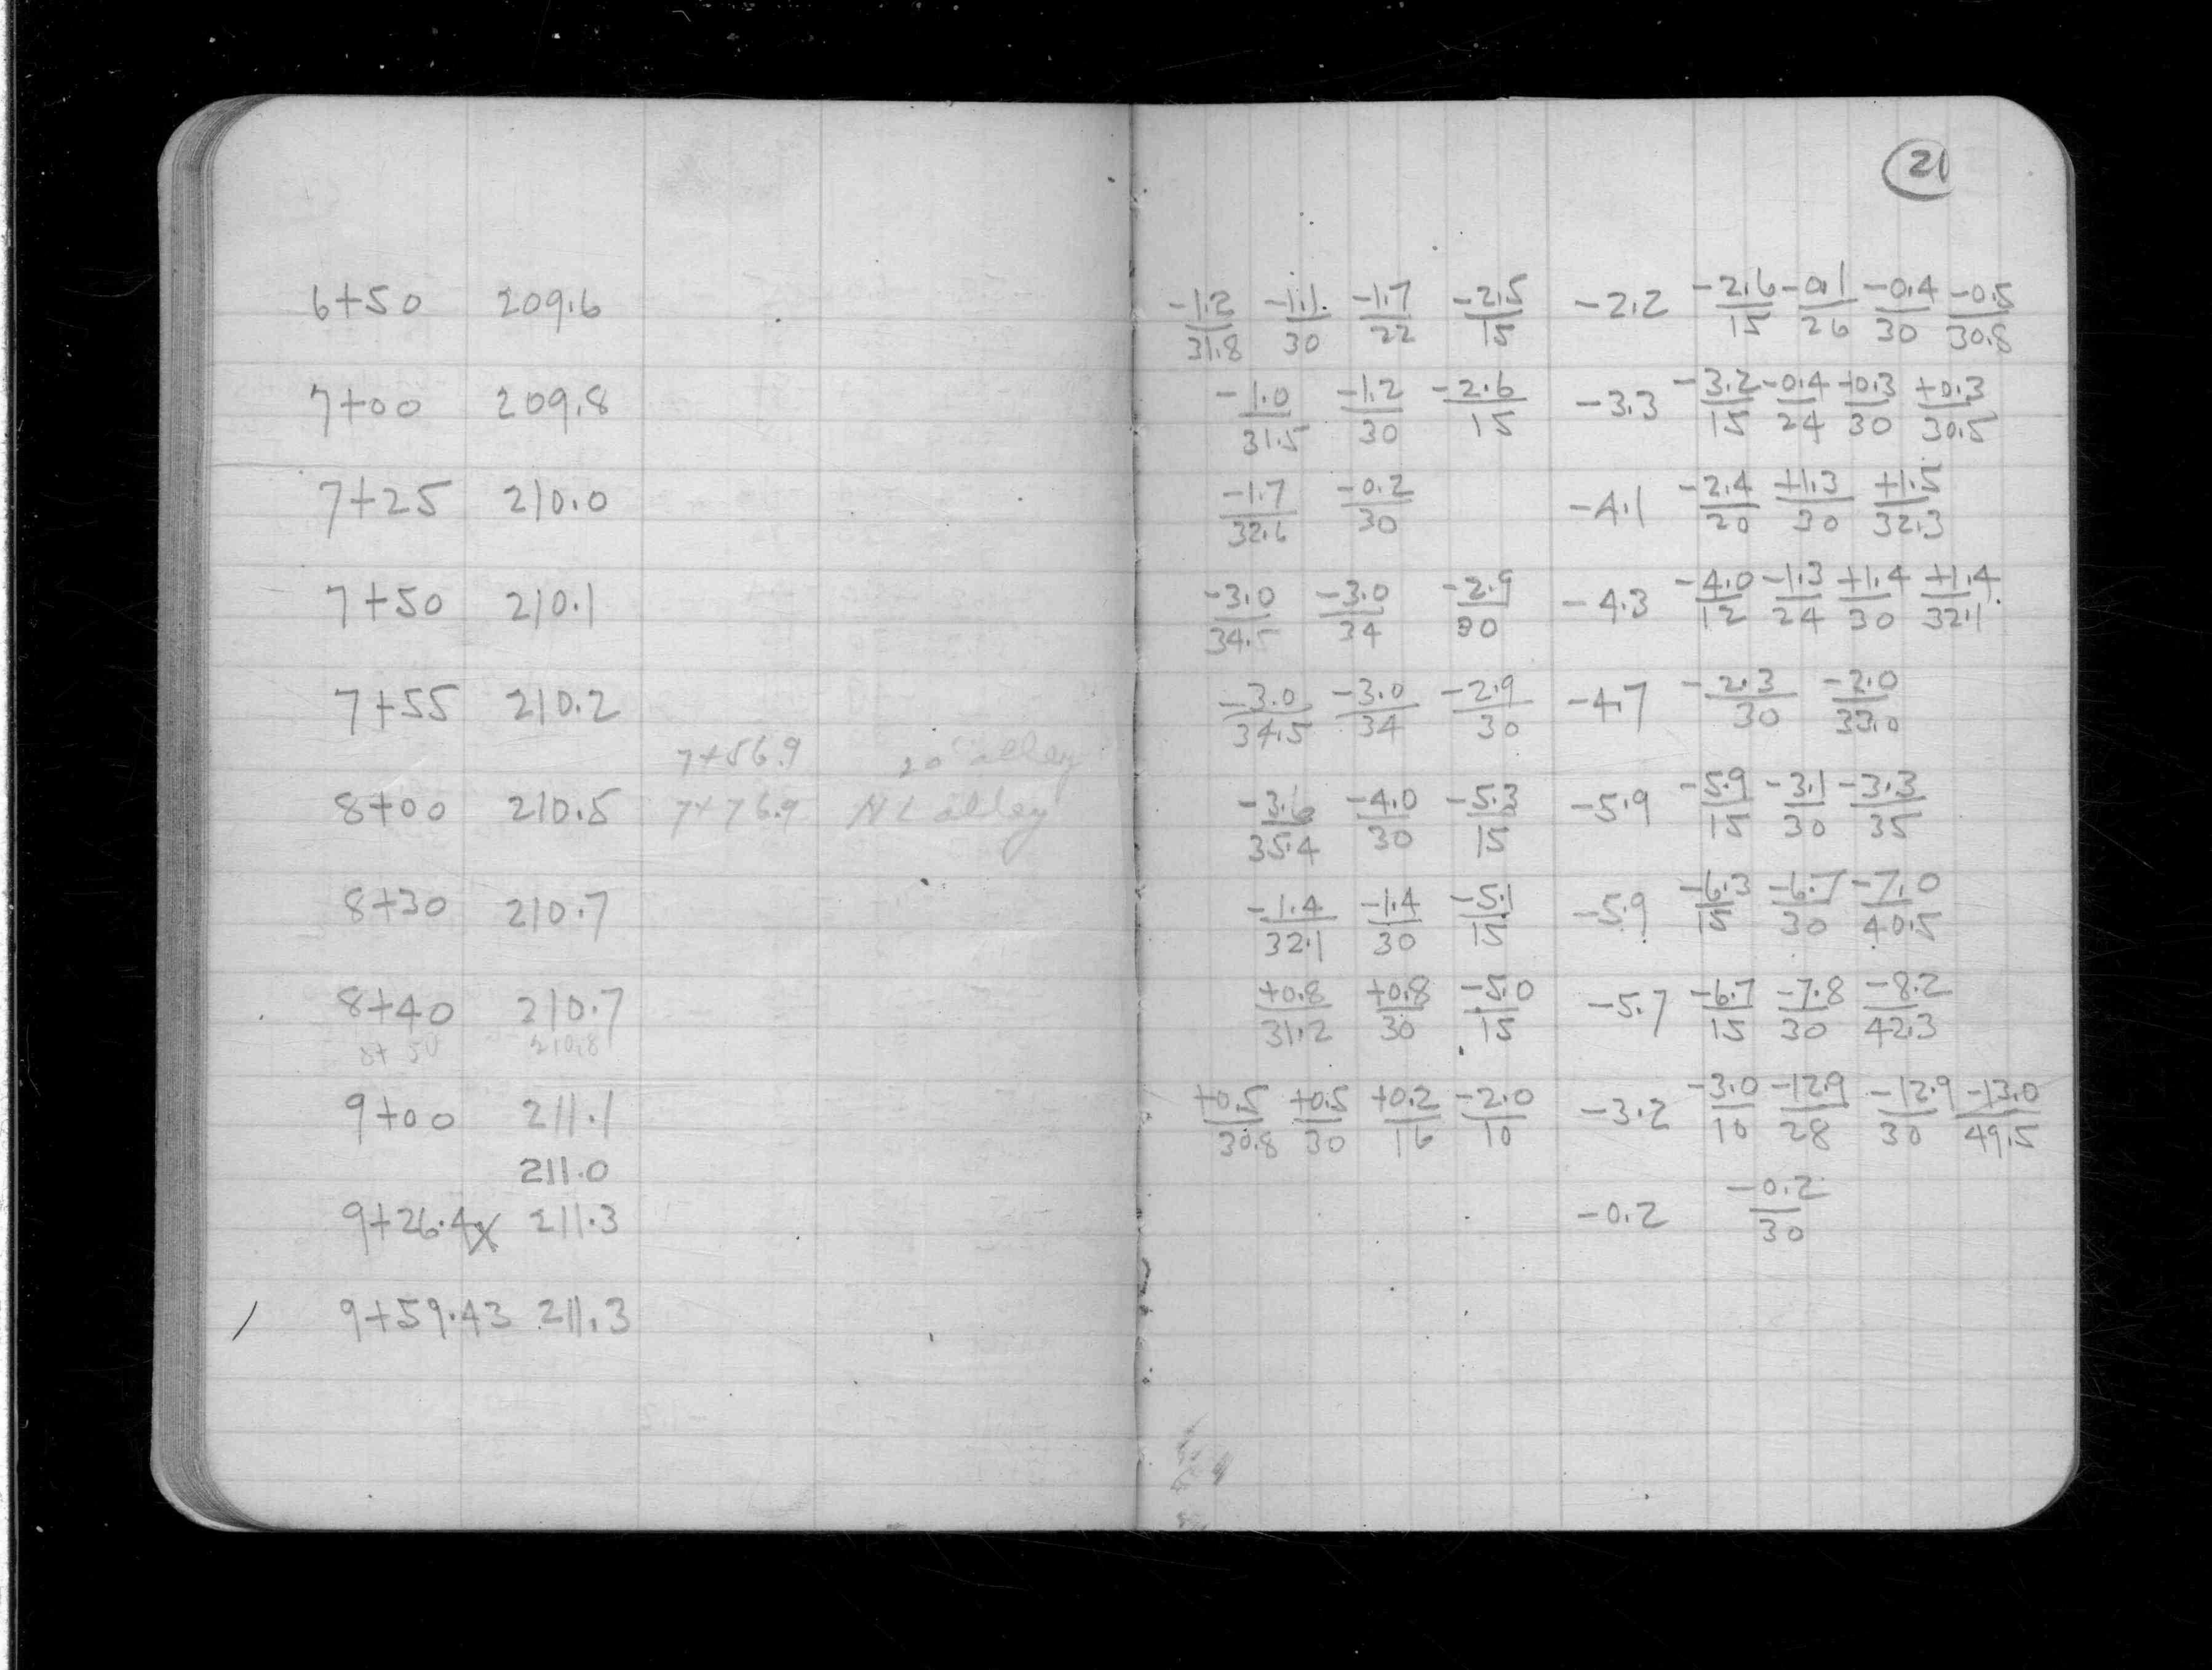 21
6+50 209.6 -1.2/31.8 -1.1/30 -1.7/22 -2.5/15 -2.2 -2.6/15 -0.1/26 -0.4/30 -0.5/30.8
7+00 209.8 -1.0/31.5 -1.2/30 -2.6/15 -3.3 -3.2/15 -0.4/24 +0.3/30 +0.3/30.5
7+25 210.0 -1.7/32.6 -0.2/30 -4.1 -2.4/20 +1.3/30 +1.5/32.3
7+50 210.1 -3.0/34.5 -3.0/34 -2.9/30 -4.3 -4.0/12 -1.3/24 +1.4/30 +1.4/32.1
7+55 210.2 -3.0/34.5 -3.0/34 -2.9/30 -4.7 -2.3/30 -2.0/33.0
7+56.9 20' alley
8+00 210.5 7+76.9 N L alley -3.6/35.4 -4.0/30 -5.3/15 -5.9 -5.9/15 -3.1/30 -3.3/35
8+30 210.7 -1.4/32.1 -1.4/30 -5.1/15 -5.9 -6.3/15 -6.7/30 -7.0/40.5
8+40 210.7 +0.8/31.2 +0.8/30 -5.0/15 -5.7 -6.7/15 -7.8/30 -8.2/42.3
8+50 210.8
9+00 211.1 +0.5/30.8 +0.5/30 +0.2/16 -2.0/10 -3.2 -3.0/10 -12.9/28 -12.9/30 -13.0/49.5
211.0
9+26.4x 211.3 -0.2 -0.2/30
/ 9+59.43 211.3